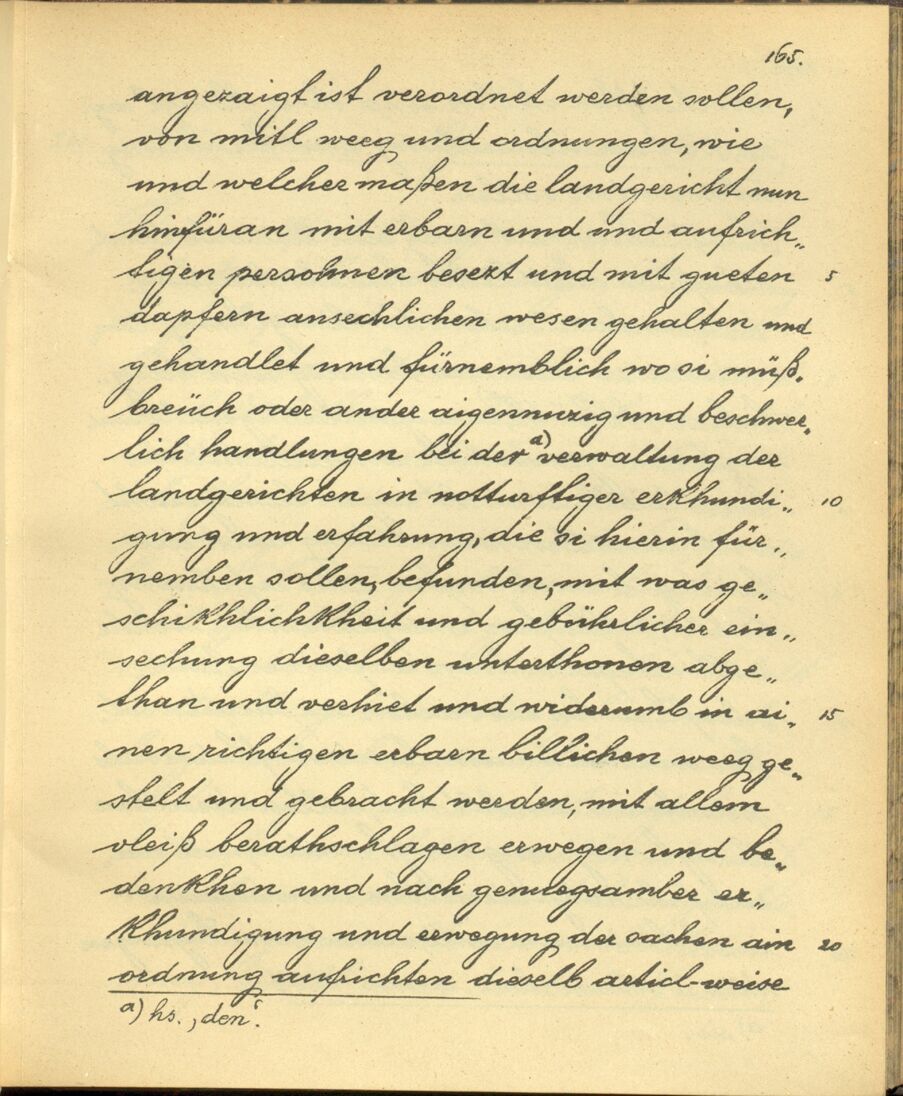 165.
angezaigt ist verordnet werden sollen,
von mitl weeg und ordnungen, wie
und welcher maßen die landgericht nun
hinfüran mit erbarn und und aufrich„
tigen persohnen besezt und mit gueten 5
dapfern ansechlichen wesen gehalten und
gehandlet und fürnemblich wo si müß„
breüch oder ander aigennuzig und beschwer„
lich handlungen bei der a) verwaltung der
landgerichten in notturftiger erkhundi„ 10
gung und erfahrung, die si hierin für„
nemben sollen, befunden, mit was ge„
schikhlichkheit und gebührlicher ein„
sechung dieselben unterthonen abge„
than und verhiet und widerumb in ai„ 15
nen richtigen erbarn billichen weeg ge„
stelt und gebracht werden, mit allem
vleiß berathschlagen erwegen und be„
denkhen und nach genuegsamber er„
khundigung und erwegung der sachen ain 20
ordnung aufrichten dieselb articl-weise
a) hs. ‚den‘.